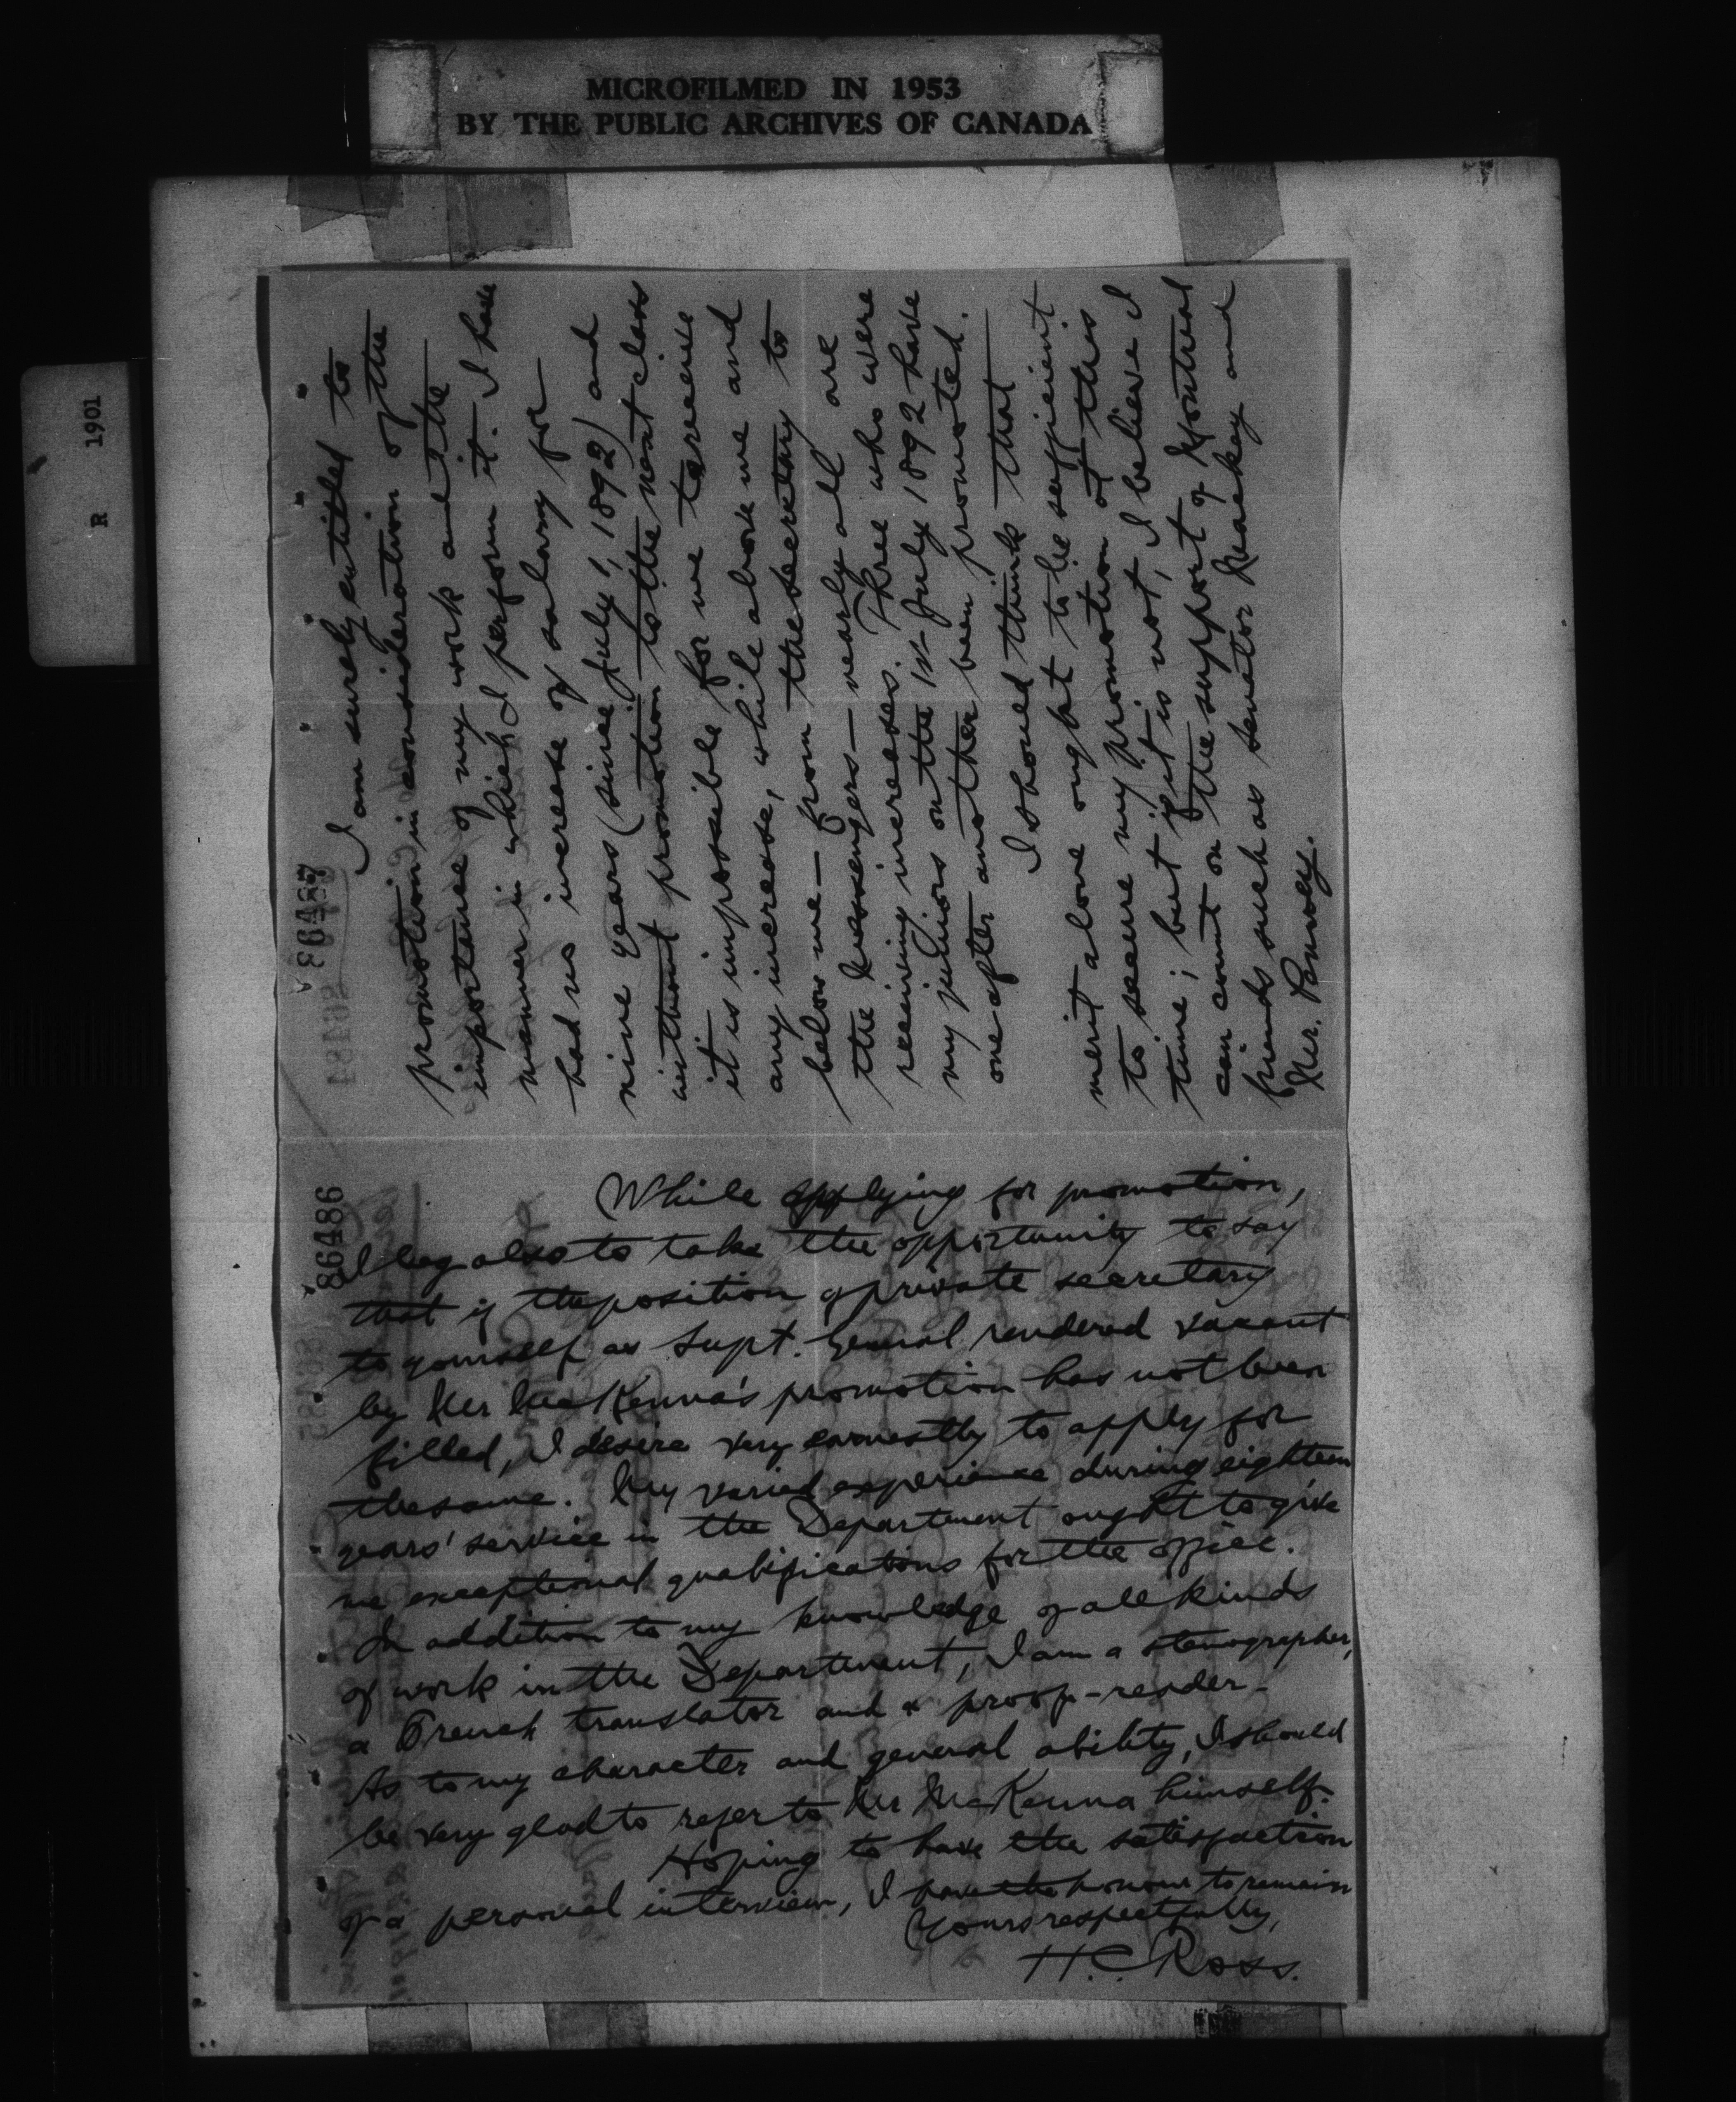 MICROFILMED IN 1953
BY THE PUBLIC ARCHIVES OF CANADA
R 1901
I am surely entitled to
promotion in consideration of the
importance of my work and the
manner in which I perform it. I have
had no increase of salary for
nine years (since July 1, 1892) and
without promotion to the next class
it is impossible for me to receive
any increase, while above me and
below me — from the secretary to
the messengers — nearly all are
receiving increases. Three who were
my juniors on the 1st July 1892 have
one after another been promoted.
I should think that
merit alone ought to be sufficient
to secure my promotion at this
time; but if it is not, I believe I
can count on the support of Montreal
friends such as Senator Mackay and
Mr. Penny.
86486
While applying for promotion,
I beg also to take the opportunity to say
that if the position of private secretary
to yourself as Supt. General rendered vacant
by Mr MacKenna's promotion has not been
filled, I desire very earnestly to apply for
the same. My varied experience during eighteen
years' service in the Department ought to give
me exceptional qualifications for the office.
In addition to my knowledge of all kinds
of work in the Department, I am a stenographer,
a French translator and a proof-reader.
As to my character and general ability, I should
be very glad to refer to Mr McKenna himself.
Hoping to have the satisfaction
of a personal interview, I have the honour to remain
Yours respectfully,
H. C. Ross.